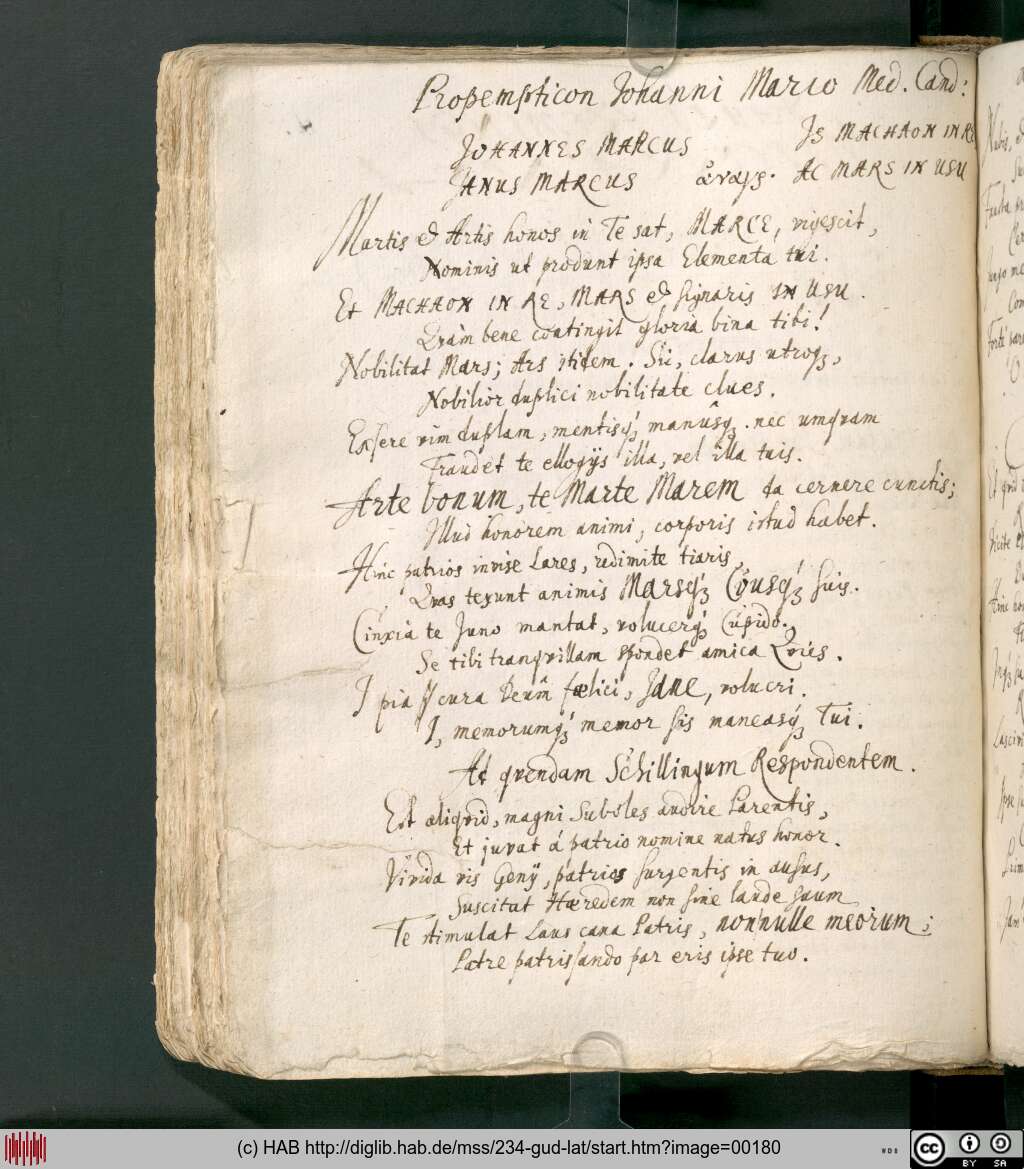 Propempticon Johanni Marco Med. Cand:
JOHANNES MARCUS IS MACHAON IN RE
JANUS MARCUS ἀναγρ. AC MARS IN USU
Martis & Artis honos in Te sat, MARCE, vigescit,
Nominis ut produnt ipsa Elementa tui.
Et MACHAON IN RE, MARS & signaris IN USU.
Quàm bene contingit gloria bina tibi!
Nobilitat Mars; Ars itidem. Sic, clarus utroqȝ,
Nobilior duplici nobilitate clues.
Exsere vim duplam, mentisqȝ manûsqȝ. nec umqvam
Fraudet te ellogijs illa, vel illa tuis.
Arte bonum, te Marte Marem da cernere cunctis;
Illud honorem animi, corporis istud habet.
Hinc patrios invise Lares, redimite tiaris,
Qvas texunt animis Marsqȝ Cousqȝ suis.
Cinxia te Juno mantat, volucerqȝ Cupido.
Se tibi tranqvillam spondet amica Qvies.
I pia cura Deum fœlici, Jane, volucri.
I, memorumqȝ memor sis maneasqȝ Tui.
Ad qvendam Schillingum Respondentem.
Est aliqvid, magni Suboles audire Parentis,
Et juvat á patrio nomine natus honor.
Vivida vis Genij, patrios surgentis in ausus,
Suscitat Hæredem non sine laude suum
Te stimulat Laus cana Patris, nonnulle meorum;
Patre patrissando par eris ipse tuo.
(c) HAB http://diglib.hab.de/mss/234-gud-lat/start.htm?image=00180
WDB
cc BY SA